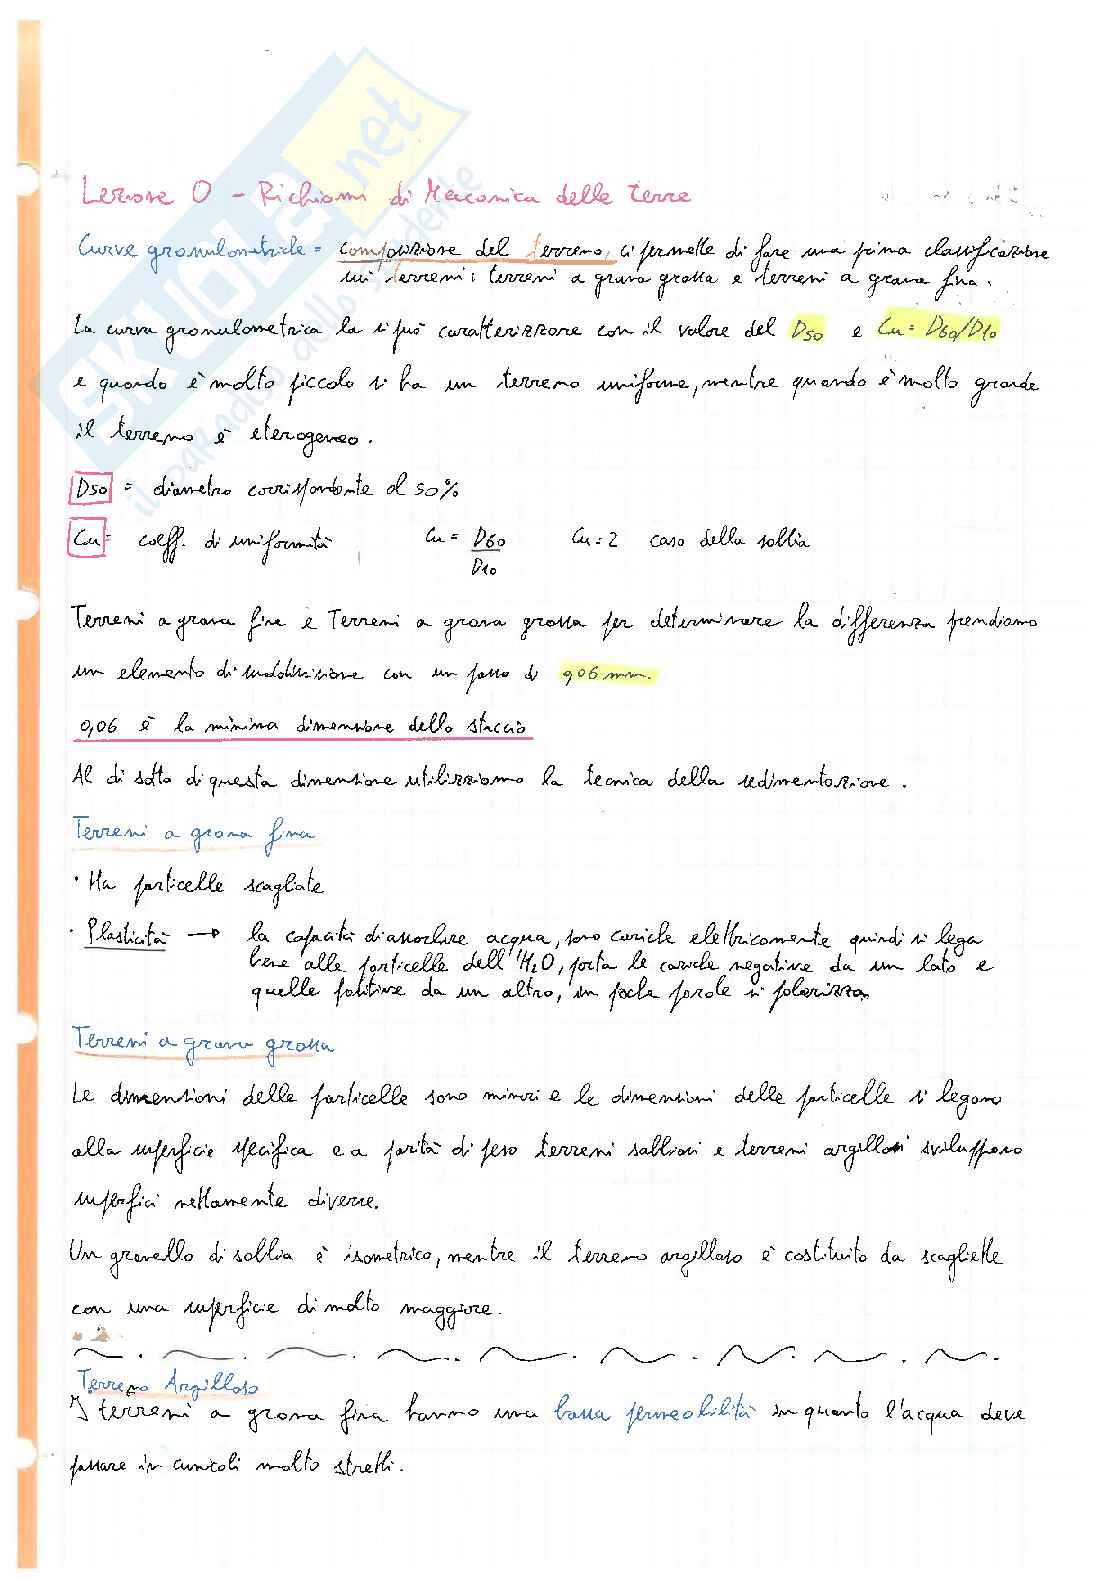 Lezione 0 - Richiami di Meccanica delle terre
Curve granulometriche = composizione del terreno, ci permette di fare una prima classificazione
sui terreni: terreni a grana grossa e terreni a grana fina.
La curva granulometrica la si può caratterizzare con il valore del D50 e Cu = D60/D10
e quando è molto piccolo si ha un terreno uniforme, mentre quando è molto grande
il terreno è eterogeneo.
D50 = diametro corrispondente al 50%
Cu = coeff. di uniformità Cu = D60/D10 Cu = 2 caso della sabbia
Terreni a grana fina e Terreni a grana grossa per determinare la differenza prendiamo
un elemento di suddivisione con un passo di 0,06 mm.
0,06 è la minima dimensione dello staccio
Al di sotto di questa dimensione utilizziamo la tecnica della sedimentazione.
Terreni a grana fina
· Ha particelle scagliate
· Plasticità → la capacità di assorbire acqua, sono cariche elettricamente quindi si lega
bene alle particelle dell'H2O, porta le cariche negative da un lato e
quelle positive da un altro, in poche parole si polarizza
Terreni a grana grossa
Le dimensioni delle particelle sono minori e le dimensioni delle particelle si legano
alla superficie specifica e a parità di peso terreni sabbiosi e terreni argillosi sviluppano
superfici nettamente diverse.
Un granello di sabbia è isometrico, mentre il terreno argilloso è costituito da scagliette
con una superficie di molto maggiore.
Terreno Argilloso
I terreni a grana fina hanno una bassa permeabilità in quanto l'acqua deve
passare in cunicoli molto stretti.
SKUOLA.net
il paradiso dello studente